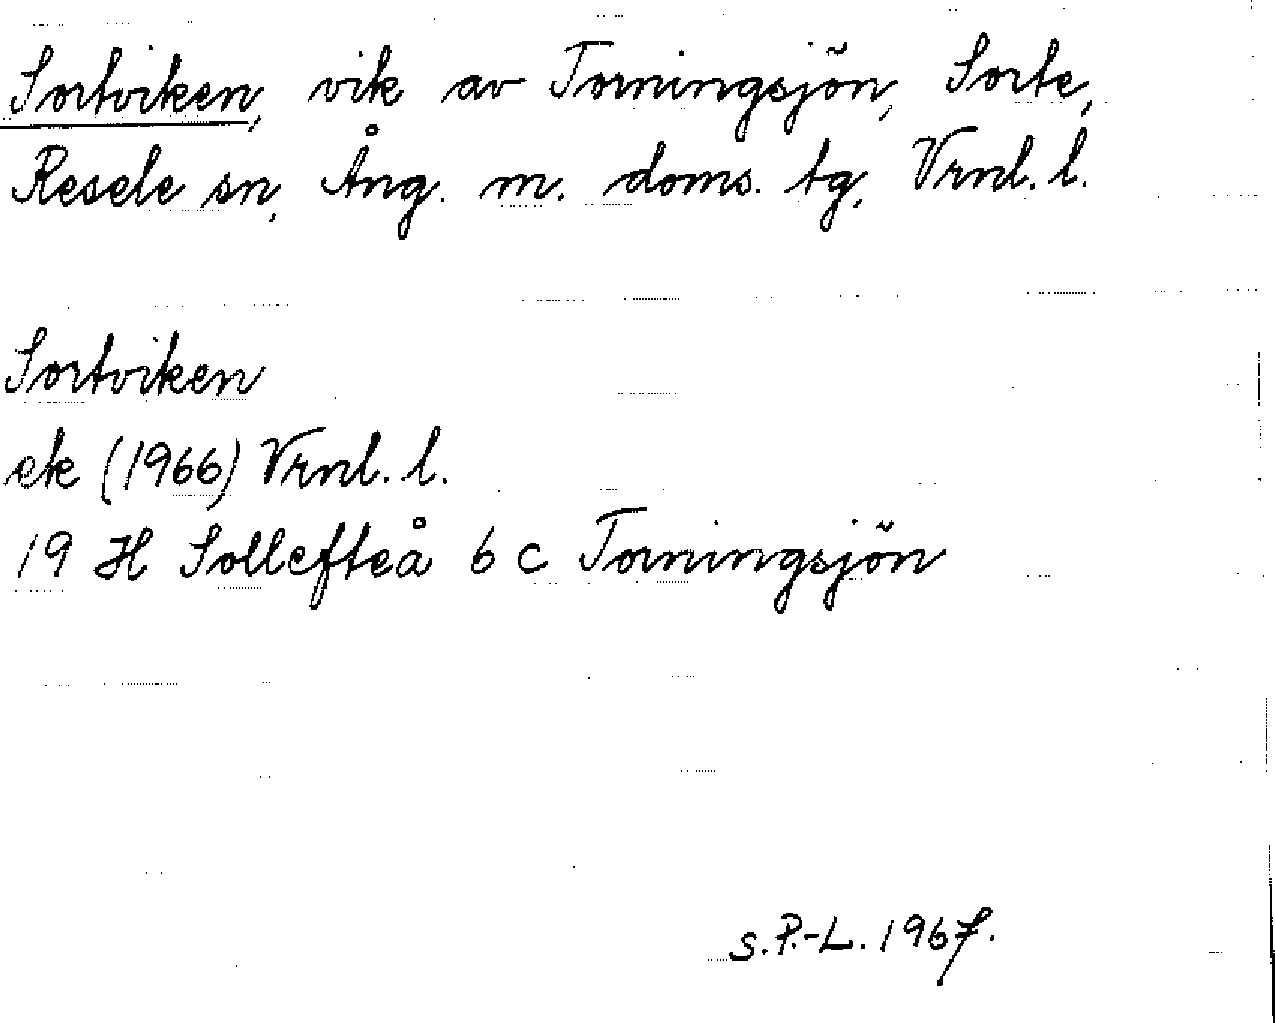 Sortviken, vik av Torningsjön, Sorte,
Resele sn, Ång. m. doms. tg, Vrnl. l.
Sortviken
ek (1966) Vrnl. l.
19 H Sollefteå 6 c Torningsjön
S. P.-L. 1967.